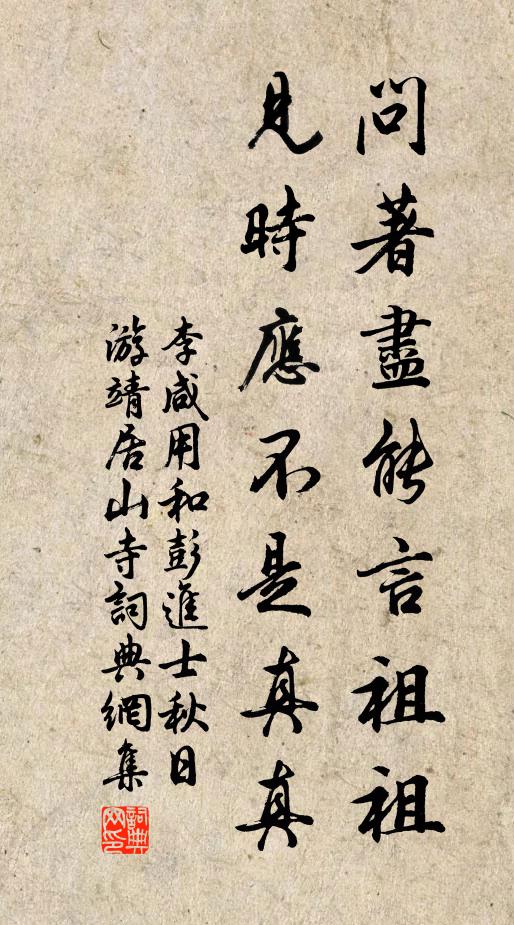 問著盡能言祖祖
見時應不是真真
李咸用和彭進士秋日
游靖居山寺詞典網集
詞典网印